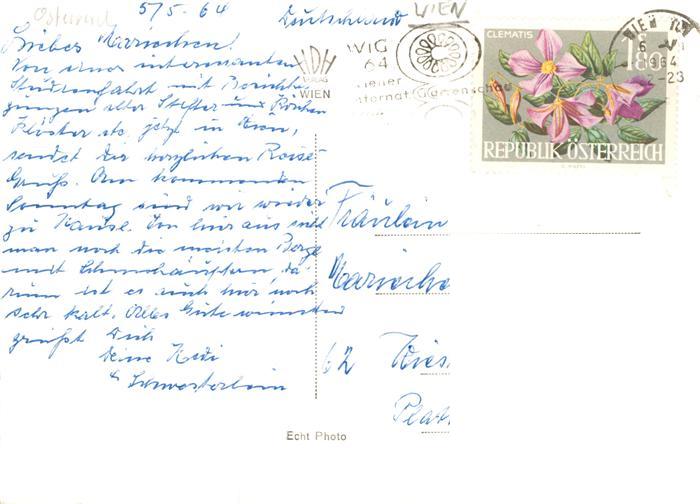 Österreich
5/5. 64
Deutschland
WIEN
Liebes Mariechen!
Von einer interessanten
Studienfahrt mit Besichti-
gungen alter Stifter und Kirchen
Klöster etc. jetzt in Wien,
sendet Dir herzlichen Reise-
Gruß. Am kommenden
Sonntag sind wir wieder
zu Hause. Von hier aus sieht
man noch die meisten Berge
mit Schneehäuptern, da-
rum ist es auch hier noch
sehr kalt. Alles Gute wünschend
grüßt Dich
Deine Hedi
& Schwesterlein
HDH
VERLAG
WIEN
WIG
64
Wiener
Internat. Gartenschau
WIEN
6
1964
2-23
CLEMATIS
S 1.80
REPUBLIK ÖSTERREICH
Fräulein
Marieche
62 Wies
Platt
Echt Photo